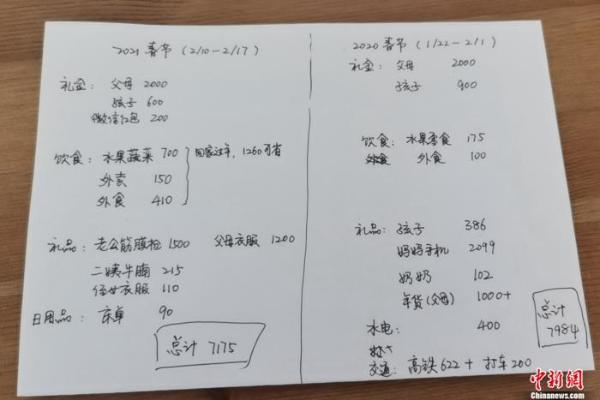 2021 春节 (2/10-2/17)
礼金: 父母 2000
孩子 600
微信红包 200
饮食: 水果蔬菜 700
外卖 150
外食 410
回家过年, 1260可省
礼品: 老公筋膜枪 1500 父母衣服 1200
二姨牛腩 215
侄女衣服 110
日用品: 床单 90
总计 7175
2020 春节 (1/22-2/1)
礼金: 父母 2000
孩子 900
饮食: 水果零食 175
外食 100
礼品: 孩子 386
妈妈手机 2099
奶奶 102
年货(父母) 1000+
水电: 400
交通: 高铁 622 + 打车 200
总计
7984
中新网
Chinanews.com